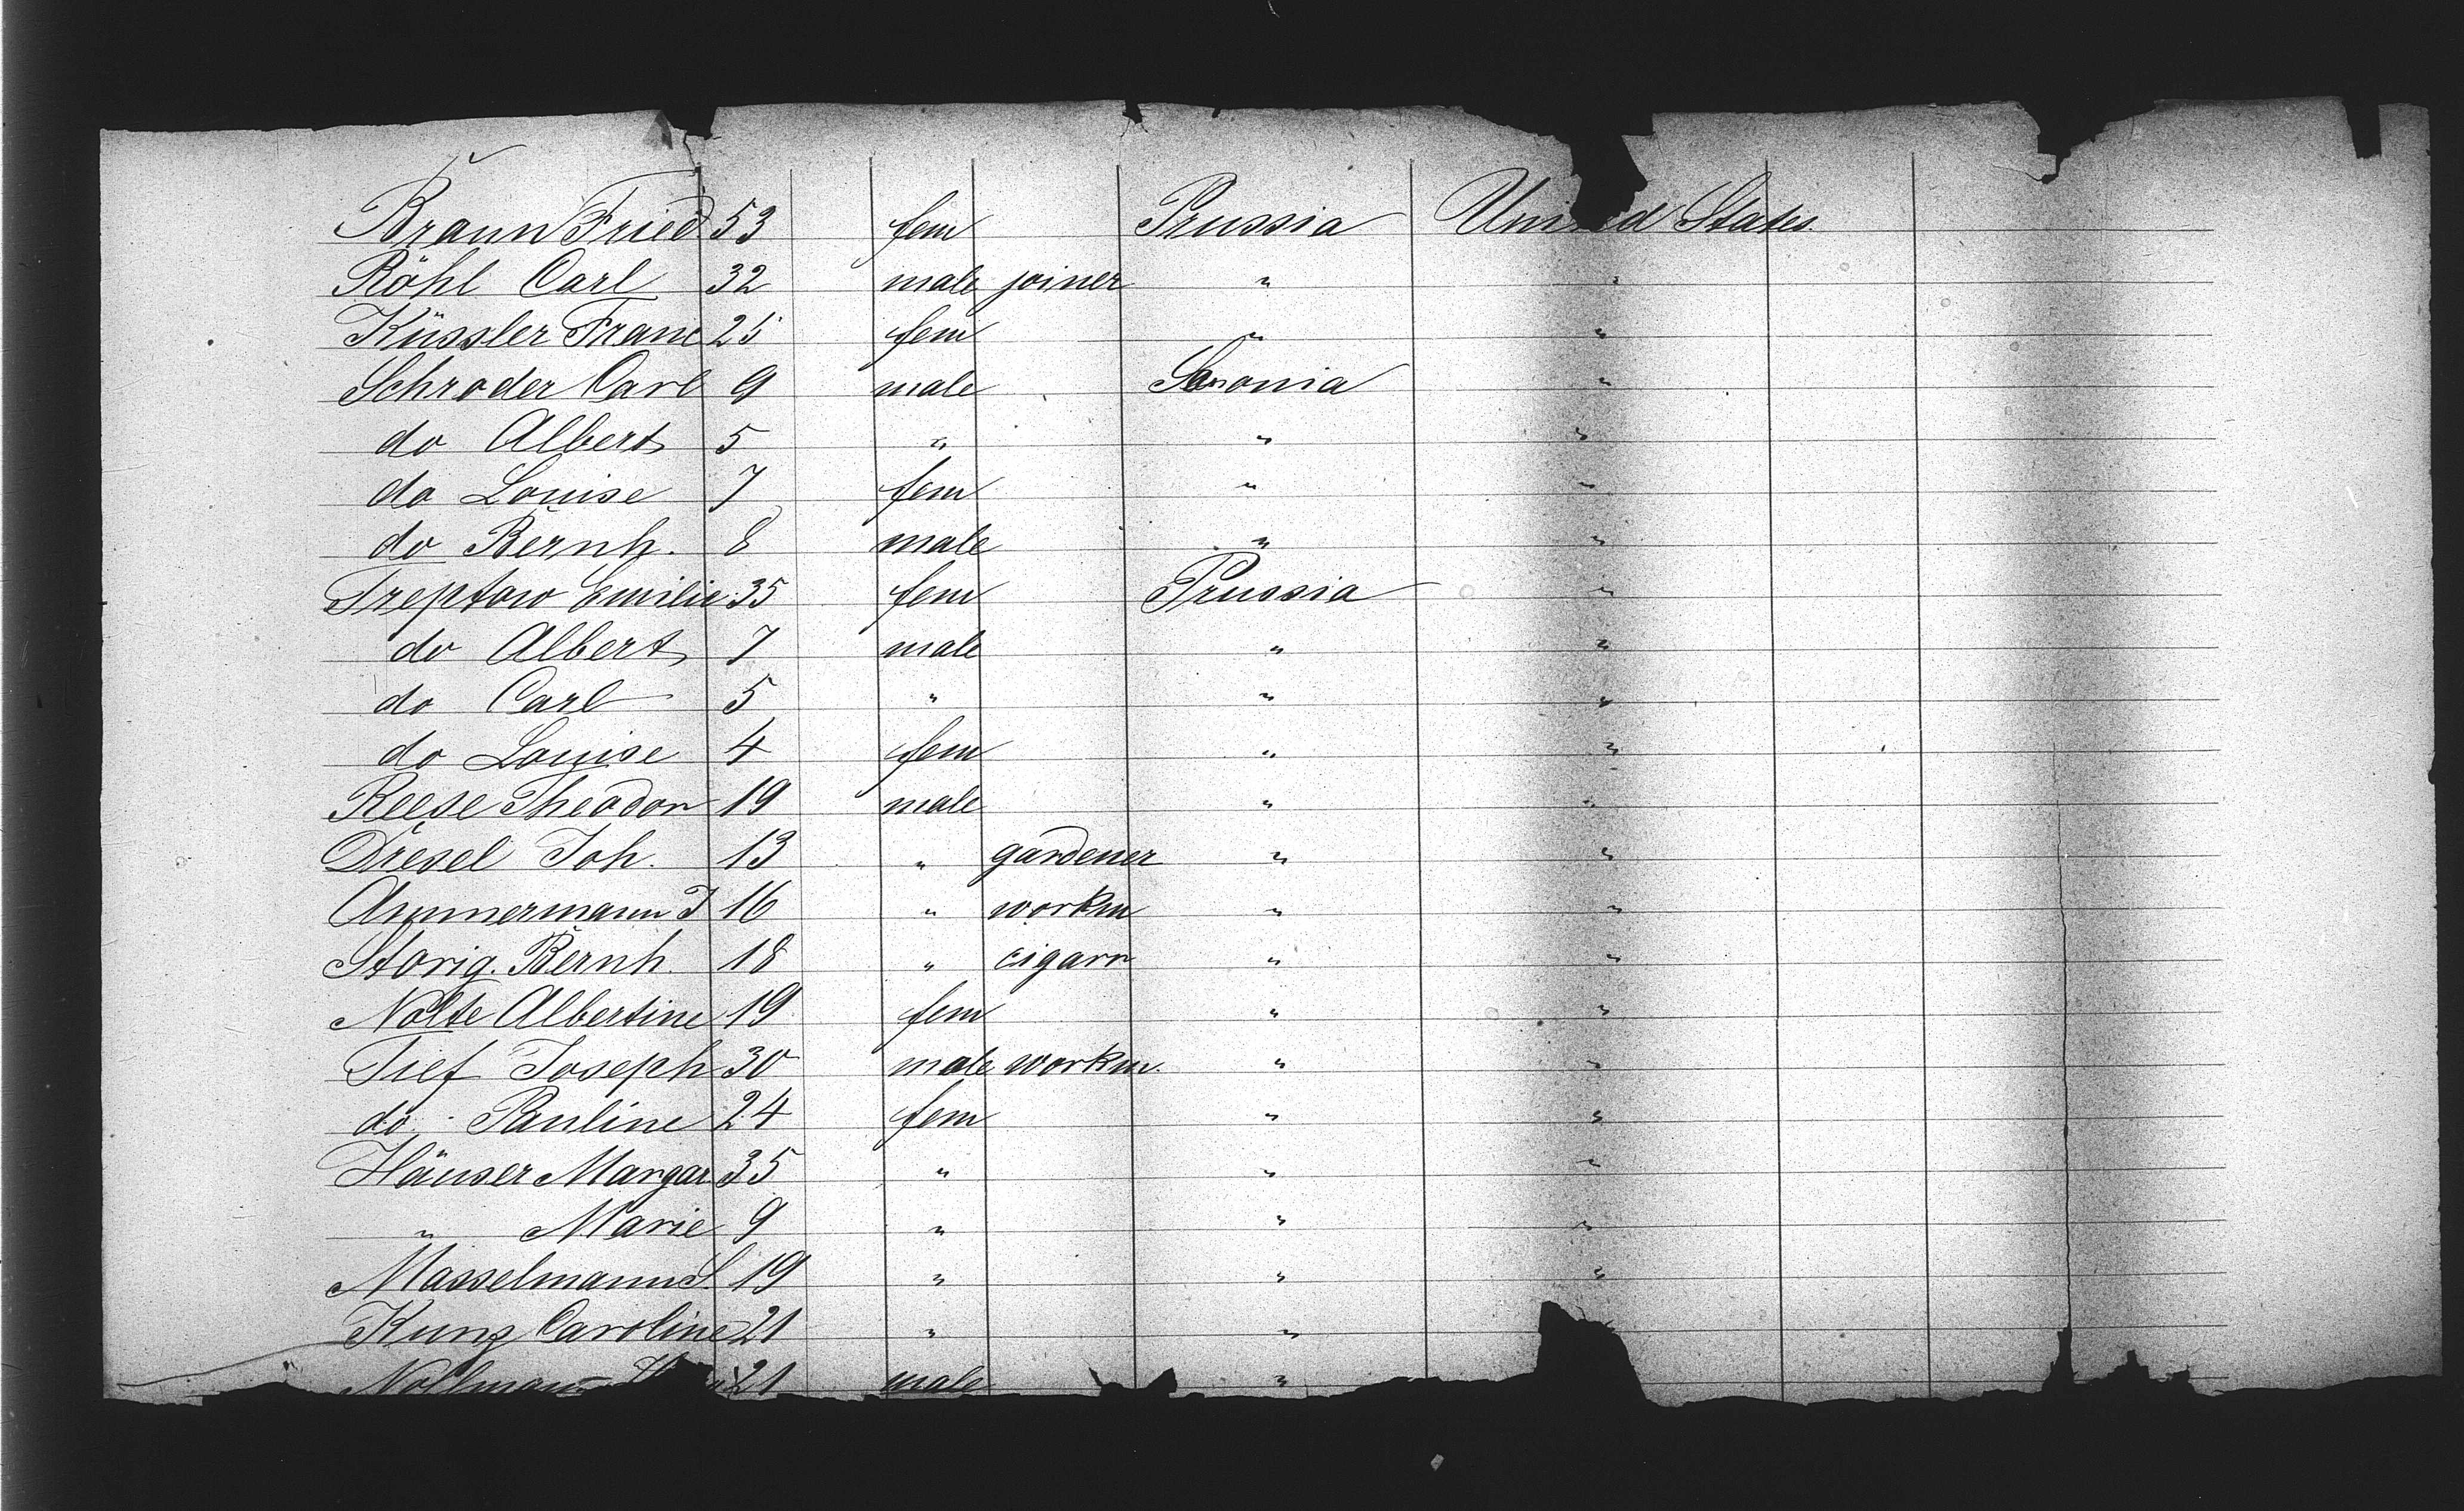 Braun Fried 53 fem Prussia United States.
Röhl Carl 32 male joiner " "
Küssler Franc 25 fem " "
Schroder Carl 9 male Saxonia "
do Albert 5 " " "
do Louise 7 fem " "
do Bernh. 8 male " "
Treptow Emilie 35 fem Prussia "
do Albert 7 male " "
do Carl 5 " " "
do Louise 4 fem " "
Reese Theodor 19 male " "
Dresel Joh. 13 " gardener " "
Ammermann J 16 " workm " "
Storig. Bernh. 18 " cigarr " "
Nolte Albertine 19 fem " "
Tief Joseph 30 male workm. " "
do Pauline 24 fem " "
Häuser Margar. 35 " " "
" Marie 9 " " "
Masselmann S. 19 " " "
Kunz Caroline 21 " "
21 male "